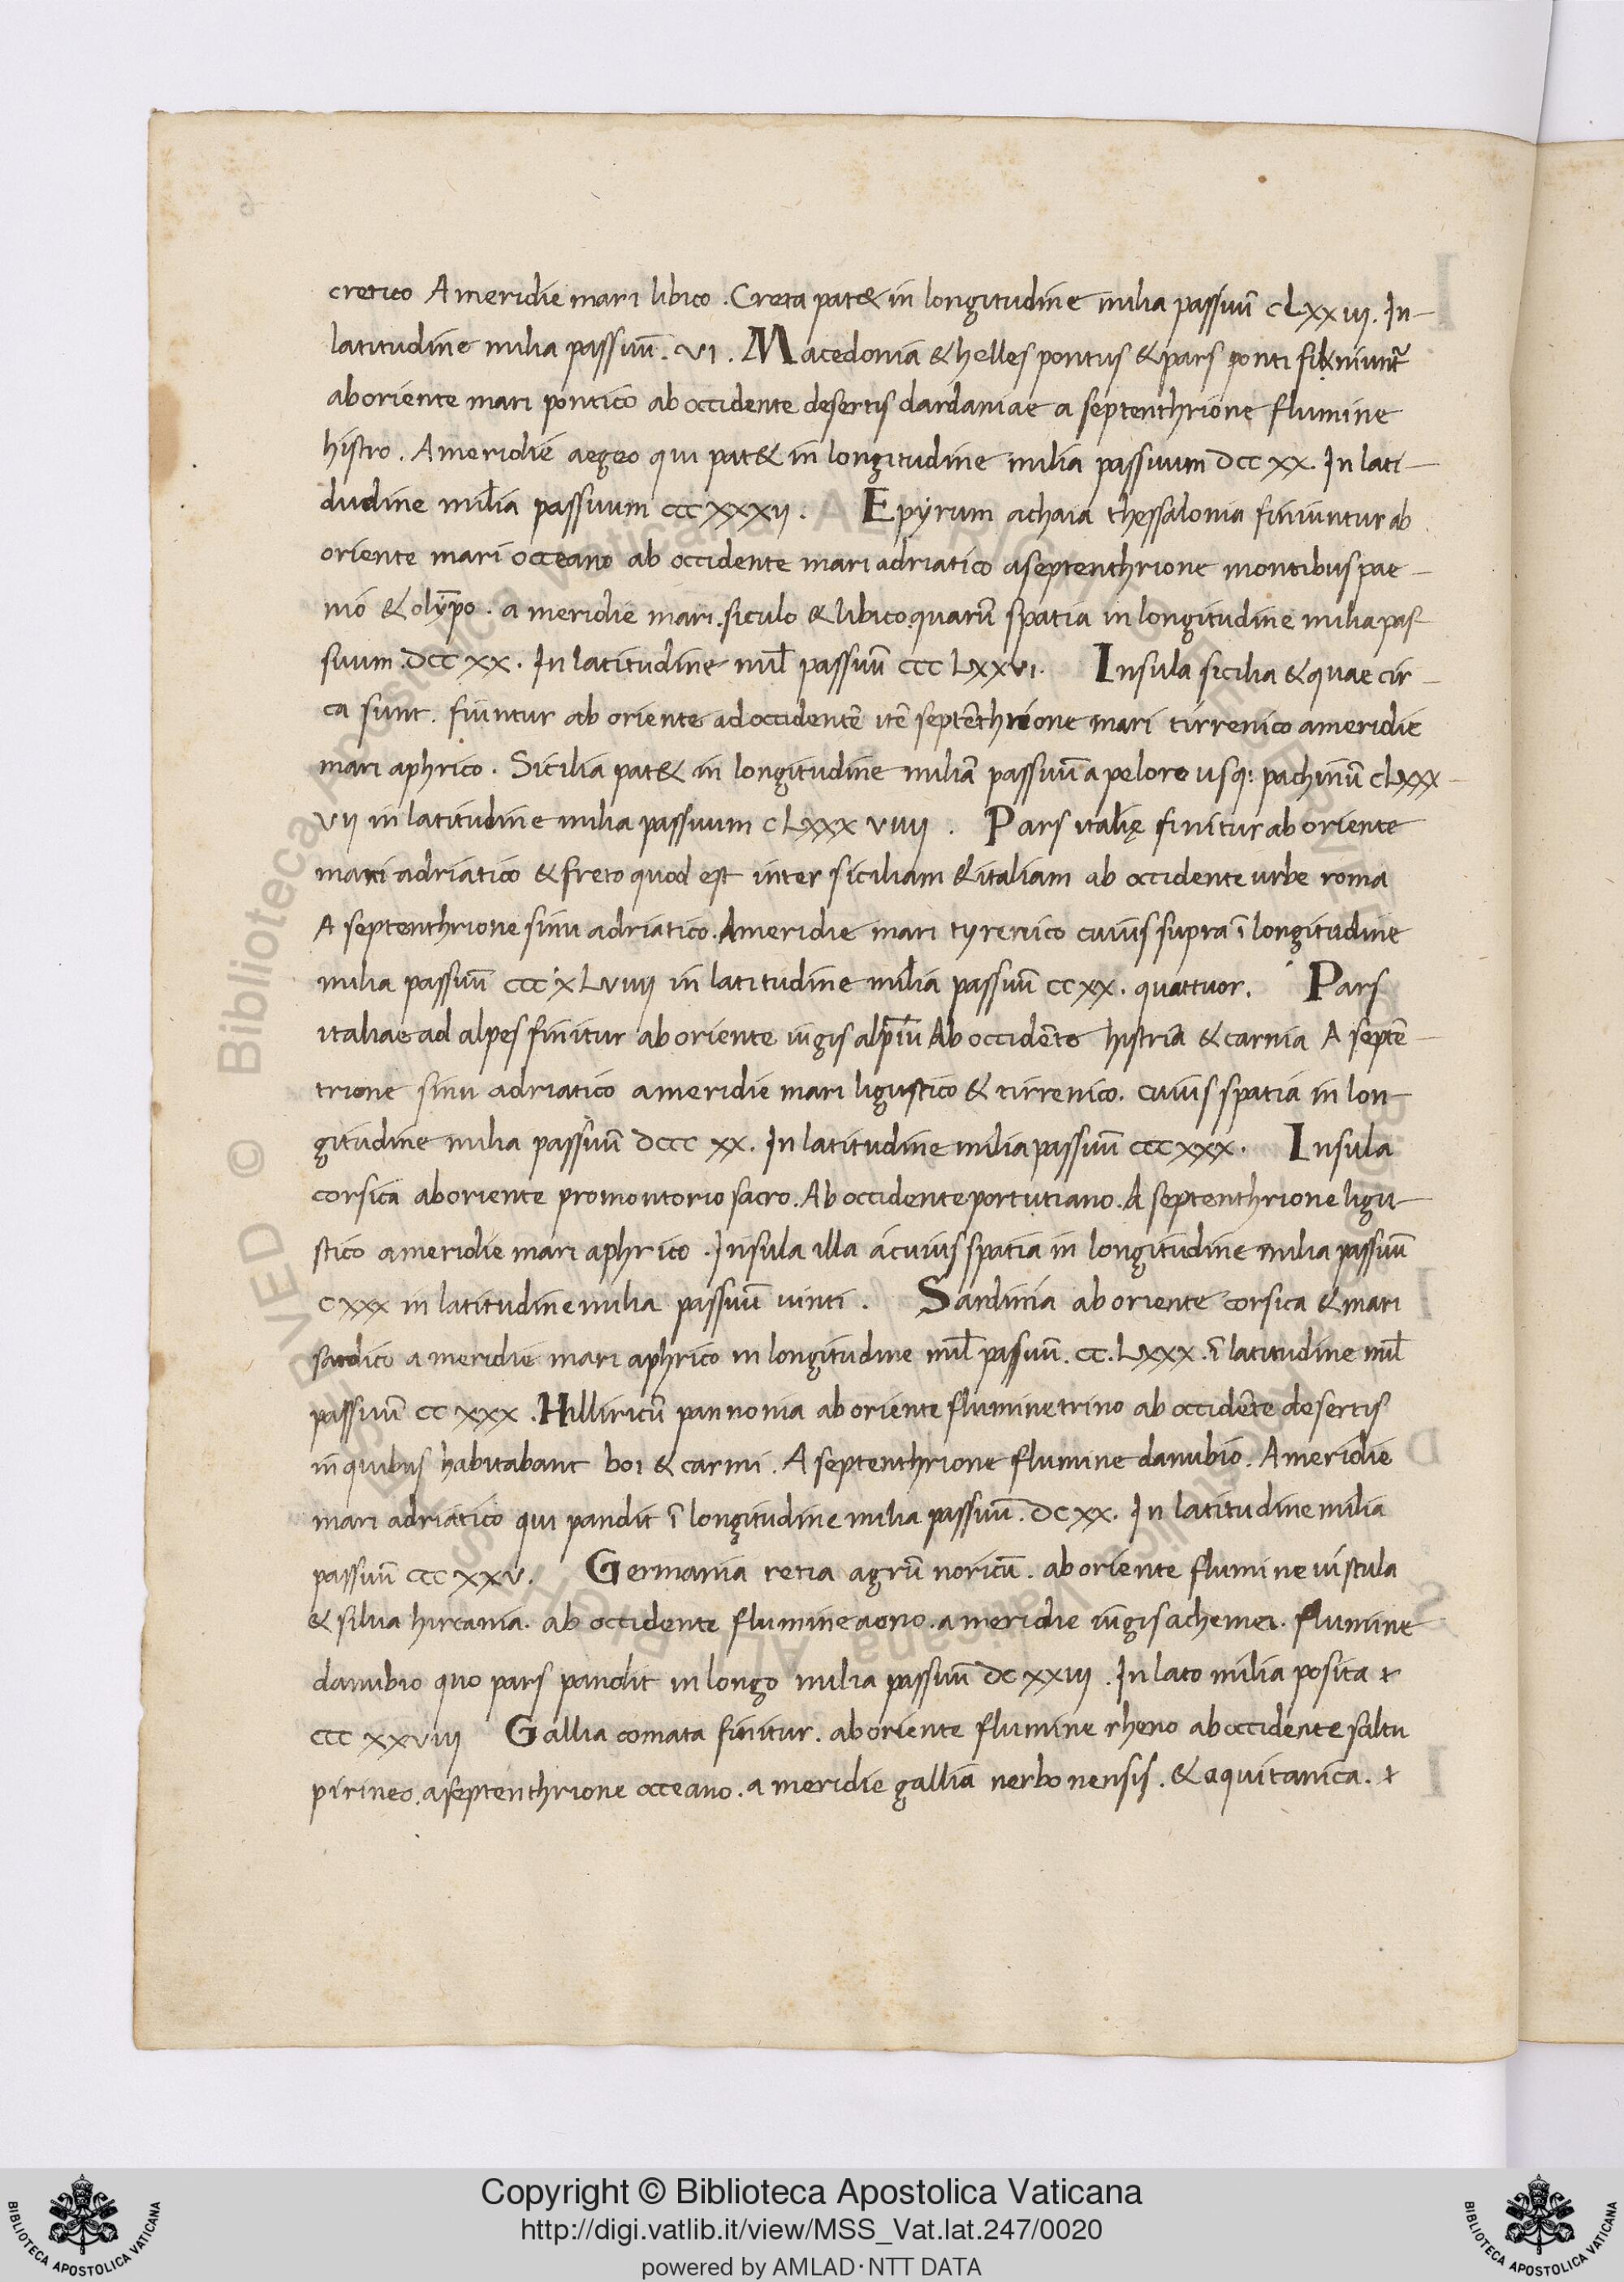 cretico A meridie mari libico . Creta pat& in longitudine milia passuū CLXXIII. In
latitudine milia passuū. VI. Macedoniā & helles pontus & pars ponti
ab oriente mari pontico ab occidente desertis dardaniae a septenthrione flumine
histro. A meridie aegeo qui pat& in longitudine milia passuum DCC XX. In lati
dudine milia passuum CCC XXXII. Epyrum achaia thessalonia finiuntur ab
oriente mari occeano ab occidente mari adriatico a septenthrione montibus pae
nio & olȳpo . a meridie mari siculo & libico quarū spatia in longitudine milia pas
suum DCC XX. In latitudine mil̄ passuū CCC LXXVI. Insula sicilia & quae cir
ca sunt. fiuntur ab oriente ad occidentē itē septēthrione mari tirrenico a meridie
mari aphrico. Sicilia pat& in longitudine miliā passuū a peloro usq: pachinū CLXXX
VII in latitudine milia passuum CLXXX VIIII . Pars italię finitur ab oriente
mari adriatico & freto quod est inter siciliam & italiam ab occidente urbe roma
A septenthrione sinu adriatico. A meridie mari tyrenico cuius supra ī longitudine
milia passuū CCC XLVIIII in latitudine milia passuū CCXX. quattuor. Pars
italiae ad alpes finitur ab oriente iugis alpiū Ab occidēte histriā & carnia A septē
trione sinu adriatico a meridie mari ligustico & tirrenico. cuius spatia in lon
gitudine milia passuū DCCC XX. In latitudine milia passuū CCCXXX. Insula
corsica ab oriente promontorio sacro. Ab occidente portutiano. A septenthrione ligu
stico a meridie mari aphrico . Insula illa a cuius spatia in longitudine milia passuū
CXXX in latitudine milia passuū uinti . Sardinia ab oriente corsica & mari
sardico a meridie mari aphrico in longitudine mil̄ passuū. CC. LXXX. ī latitudine mil̄
passuū CC XXX . Hilliricū pannonia ab oriente flumine trino ab occidēte desertis
in quibus habitabant boi & carmi. A septenthrione flumine danubio. A meridie
mari adriatico qui pandit ī longitudine milia passuū. DCXX. In latitudine milia
passuū CCC XXV. Germania retia agrū noricū. ab oriente flumine uistula
& silua hircania. ab occidente flumine aeno. a meridie iugis achemei. flumine
danubio quo pars pandit in longo milia passuū DC XXIII . In lato milia posita +
CCC XXVIII Gallia comata finitur. ab oriente flumine rheno ab occidente saltu
pirineo. a septenthrione occeano. a meridie gallia nerbonensis. & aquitanica. +
Copyright © Biblioteca Apostolica Vaticana
http://digi.vatlib.it/view/MSS_Vat.lat.247/0020
powered by AMLAD·NTT DATA
BIBLIOTECA APOSTOLICA VATICANA
BIBLIOTECA APOSTOLICA VATICANA